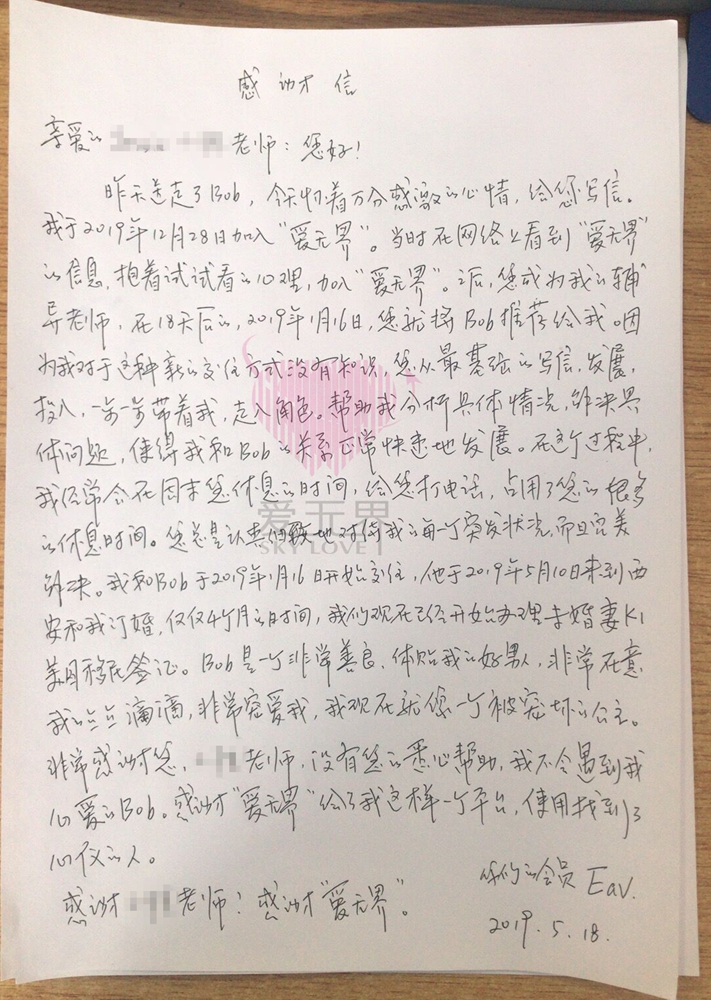 感谢信
亲爱的 老师：您好！
昨天送走了Bob，今天怀着万分感激的心情，给您写信。
我于2019年12月28日加入“爱无界”。当时在网络上看到“爱无界”
的信息，抱着试试看的心理，加入“爱无界”。之后，您成为我的辅
导老师，在18天后的，2019年1月16日，您就将Bob推荐给我。因
为我对于这种新的交往方式没有知识，您从最基础的写信，发展，
投入，一步一步带着我，走入角色。帮助我分析具体情况，解决具
体问题，使得我和Bob的关系正常快速地发展。在这个过程中，
我经常会在周末您休息的时间，给您打电话，占用了您的很多
的休息时间。您总是认真 地对待我的每一个突发状况，而且完美
解决。我和Bob于2019年1月16日开始交往，他于2019年5月10日来到西
安和我订婚，仅仅4个月的时间，我们现在已经开始办理未婚妻K1
美国移民签证。Bob是一个非常善良，体贴我的好男人，非常在意
我的点点滴滴，非常宠爱我，我现在就像一个被宠坏的公主。
非常感谢您， 老师，没有您的悉心帮助，我不会遇到我
心爱的Bob。感谢“爱无界”给了我这样一个平台，使用找到了
心仪的人。
感谢 老师！感谢“爱无界”。
你们的会员 Eav.
2019.5.18.
爱无界
SKY LOVE